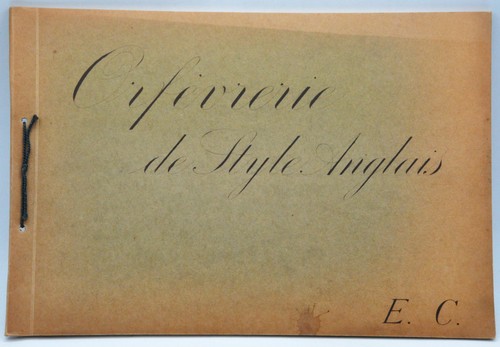 Orfèvrerie
de Style Anglais
E. C.